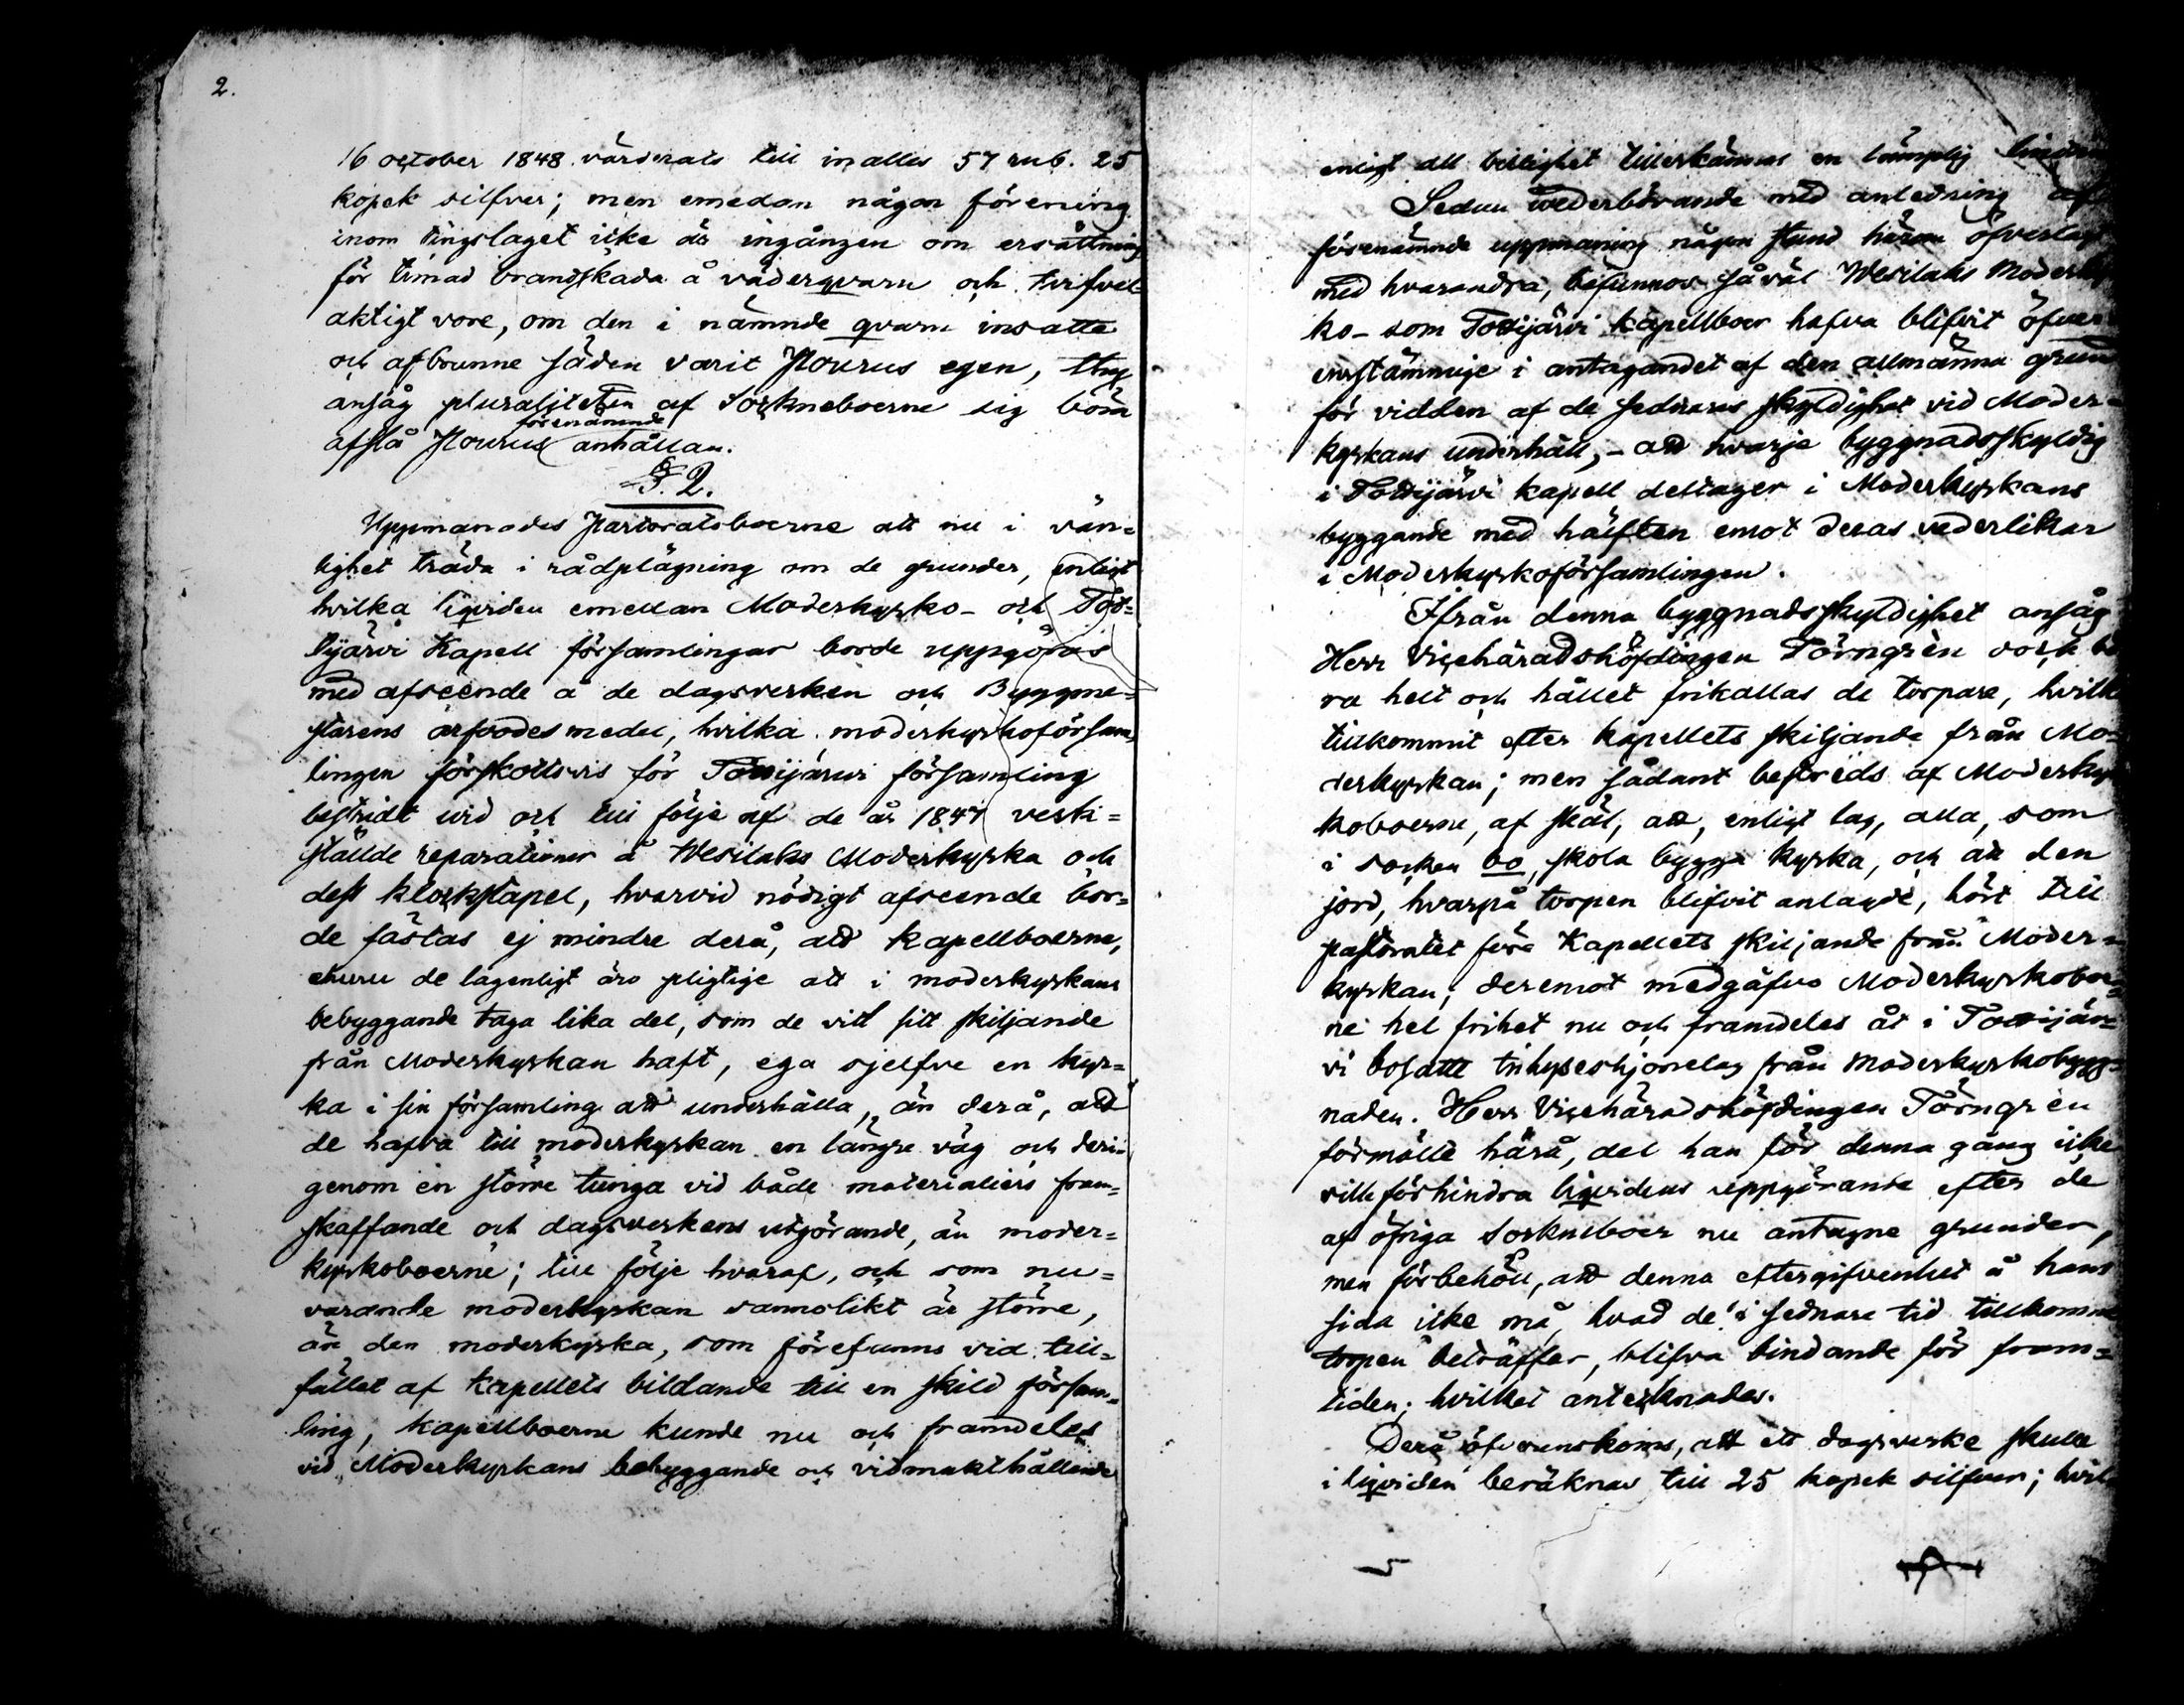 2.
16 october 1848 värderats till inalles 57 rub. 25
kopek silfver; men emedan någon förening
inom tingslaget icke är ingången om ersättning
för timad brandskada å väderqvarn och tvifvel-
aktigt vore, om den i nämnde qvarn insatte
och afbrunne säden varit Hourus egen, thy
ansåg pluraliteten af Sockneboerne sig böra
förenämnde
afslå Hourus anhållan.
§. 2.
Uppmanades Pastoratsboerne att nu i vän=
lighet träda i rådplägning om de grunder, enligt
hvilka liqviden emellan Moderkyrko- och Tot=
tijärvi Kapell församlingar borde uppgöras
med afseende å de dagsverken och Byggmä=
starens arfvodesmedel, hvilka moderkyrkoförsam=
lingen förskottsvis för Tottijärvi församling
bestridt vid och till följe af de år 1847 verk=
ställde reparationer å Wesilaks Moderkyrka och
dess klockstapel, hvarvid nödigt afseende bor=
de fästas ej mindre derå, att kapellboerne,
ehuru de lagenligt äro pligtige att i moderkyrkans
bebyggande taga lika del, som de vid sitt skiljande
från Moderkyrkan haft, ega sjelfve en kyr=
ka i sin församling att underhålla, än derå, att
de hafva till moderkyrkan en längre väg och deri=
genom en större tunga vid både materialiers fram=
skaffande och dagsverkens utgörande, än moder=
kyrkoboerne; till följe hvaraf, och som nu=
varande moderkyrkan sannolikt är större,
än den moderkyrka, som förefunns vid till=
fället af kapellets bildande till en skild försam=
ling, kapellboerne kunde nu och framdeles
vid Moderkyrkans bebyggande och vidmakthållande
enligt all billighet tillerkännas en lämplig
Sedan wederbörande med anledning af
förenämnde uppmaning någon stund härom öfverlagt
med hvarandra, befunnos såväl Wesilaks Moderkyr
ko- som Tottijärvi kapellboer hafva blifvit öfver=
ensstämmige i antagandet af den allmänna grund
för vidden af de sednares skyldighet vid Moder=
kyrkans underhåll, - att hvarje byggnadsskyldig
i Tottijärvi kapell deltager i Moderkyrkans
byggande med hälften emot deras vederlikar
i Moderkyrkoförsamlingen.
Ifrån denna byggnadsskyldighet ansåg
Herr Vicehäradshöfdingen Törngrèn vorh bö
ra helt och hållet frikallas de torpare, hvilk
tillkommit efter kapellets skiljande från Mo=
derkyrkan; men sådant bestreds af Moderkyr
koboerne, af skäl, att, enligt lag, alla, som
i socken bo, skola bygga kyrka, och att den
jord, hvarpå torpen blifvit anlagde, hört till
pastoratet före Kapellets skiljande från Moder=
kyrkan; deremot medgåfvo Moderkyrkoboer=
ne hel frihet nu och framdeles åt i Tottijär=
vi bosatte inhyseshjonelag från Moderkyrkobygg=
naden. Herr Vicehäradshöfdingen Törngrèn
förmälte härå, det han för denna gång icke
ville förhindra liqvidens uppgörande efter de
af öfriga Sockneboer nu antagne grunder,
men förbehöll, att denna eftergifvenhet å hans
sida icke må, hvad de i sednare tid tillkomne
torpen beträffar, blifva bindande för fram=
tiden; hvilket antecknades.
Derå öfverenskoms, att ett dagsverke skulle
i liqviden beräknas till 25 kopek silfver; hvil